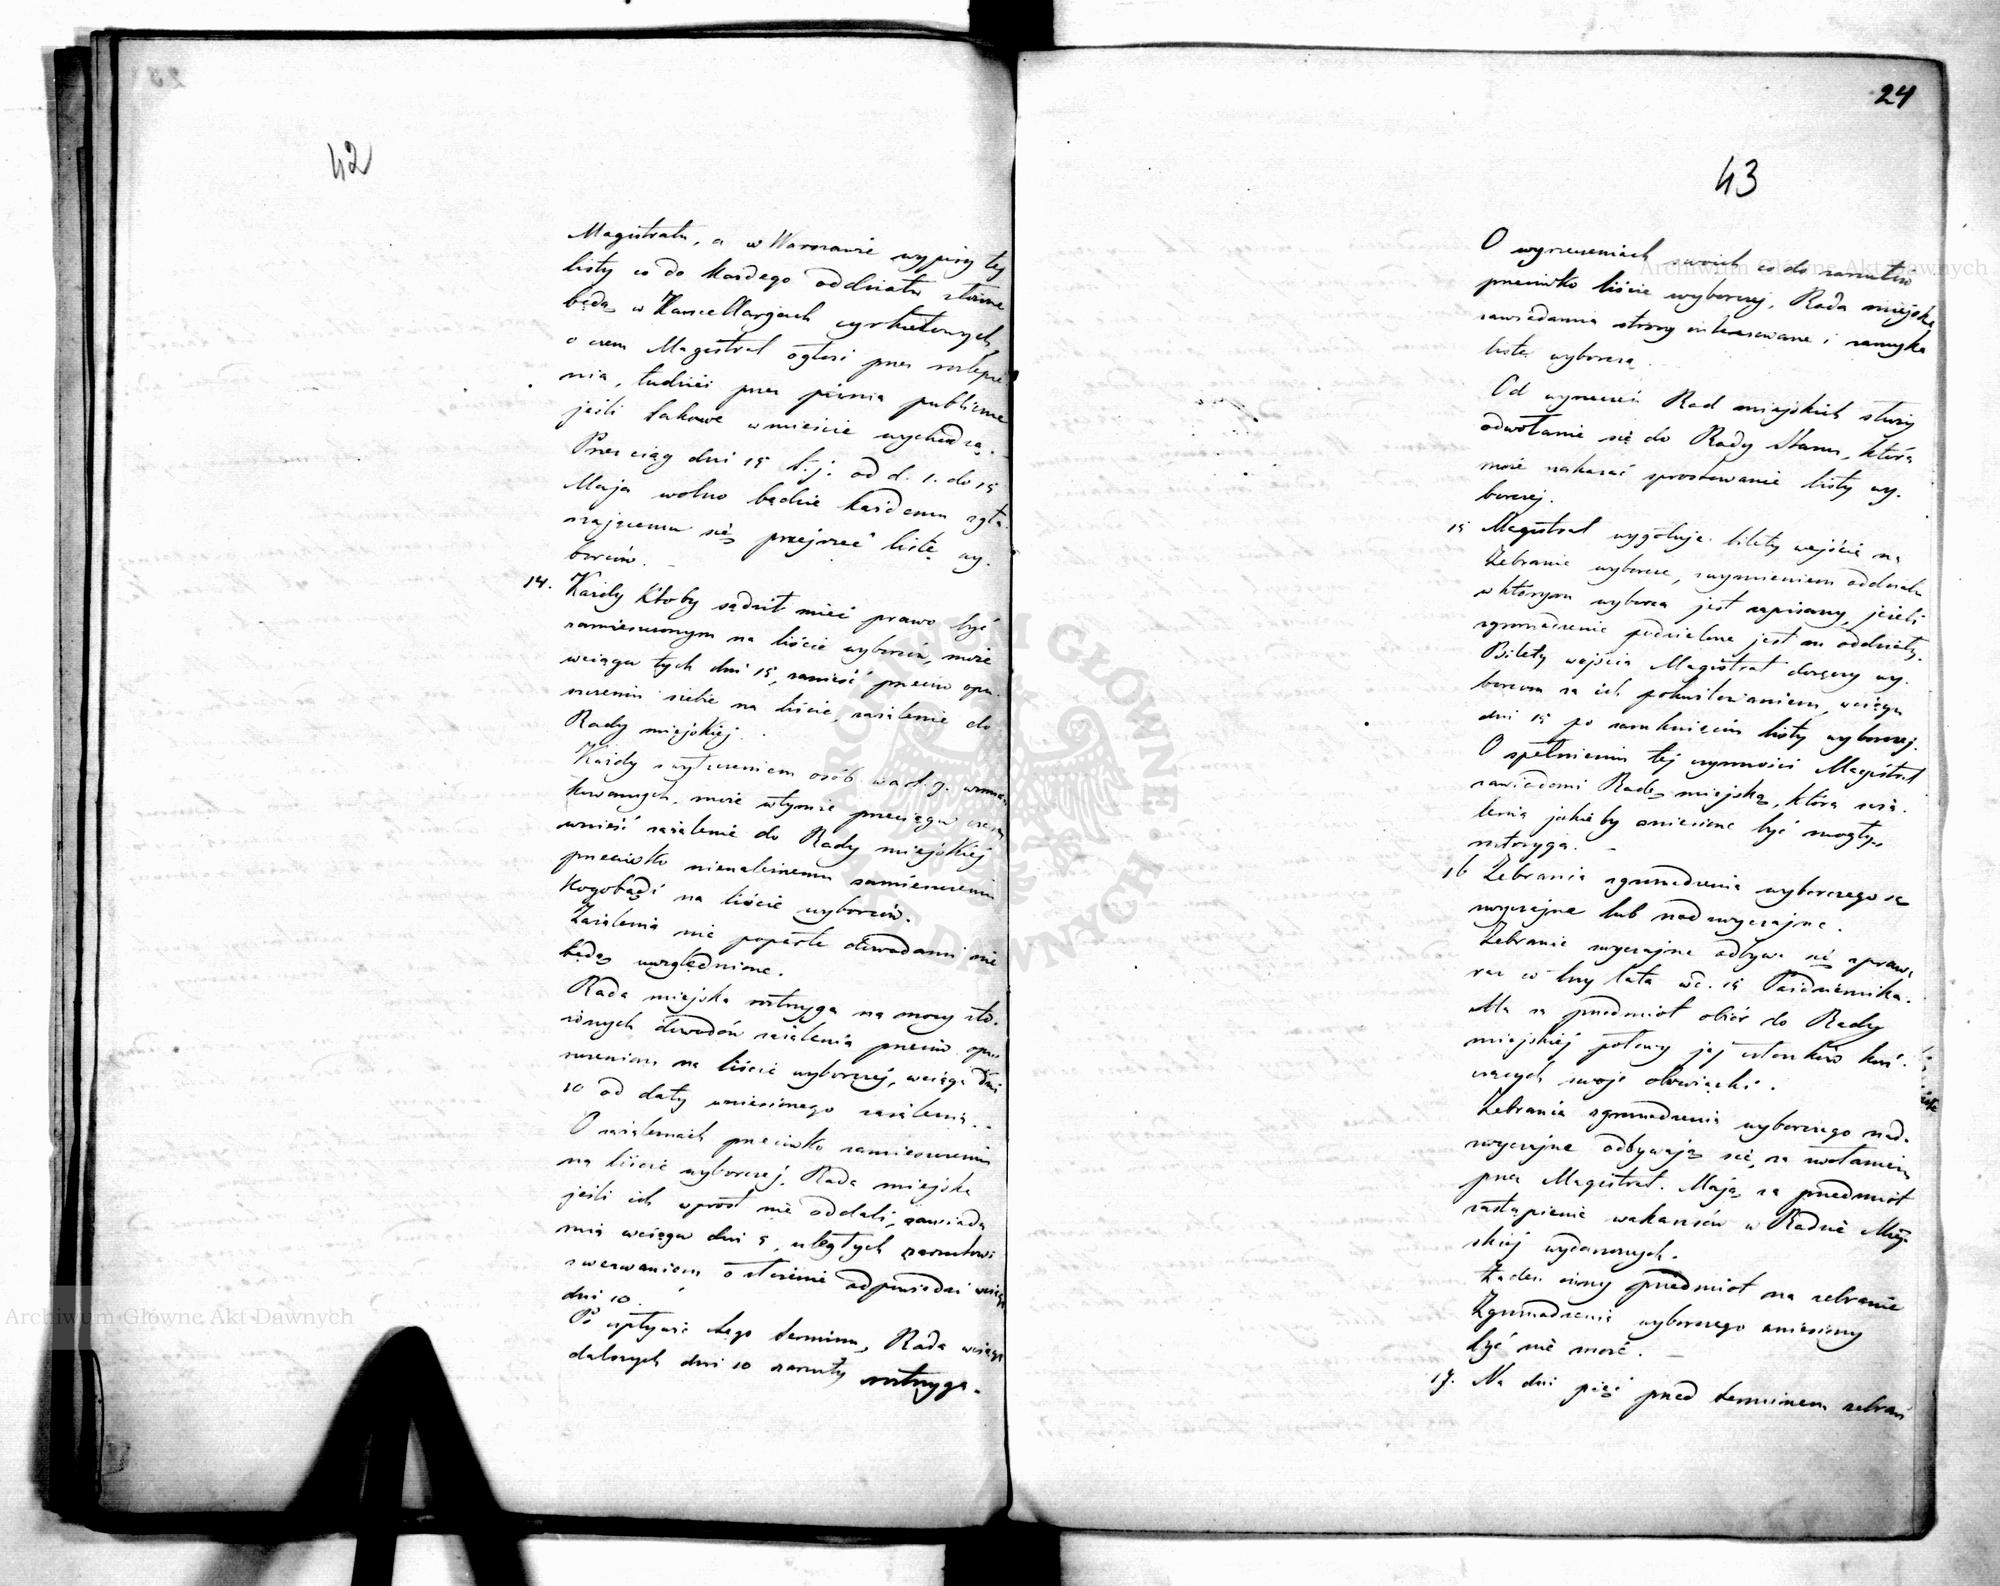 42
Magistratu, a w Warszawie wypisy tej
listy co do każdego oddziału, złożone
będą w Kancellaryach cyrkułowych
o czem Magistrat ogłosi przez rozlepie
nia, tudzież przez pisma publiczne
jeśli takowe w mieście wychodzą.
Przez ciąg dni 15 t. j. od d. 1. do 15
Maja wolno będzie każdemu zgła-
szającemu się, przejrzeć listę wy-
borców.
14. Każdy ktoby sądził mieć prawo być
zamieszczonym na liście wyborców, może
wciągu tych dni 15, zanieść przeciw opu-
szczeniu siebie na liście, zażalenie do
Rady miejskiej.
Każdy z wyłączeniem osób w art. 7.
kowanych, może w tymże przeciągu czasu
wnieść zażalenie do Rady miejskiej
przeciwko nienależnemu zamieszczeniu
kogobądź na liście wyborców.
Zażalenia nie poparte dowodami nie
będą uwzględnione.
Rada miejska roztrzyga na mocy zło-
żonych dowodów zażalenia przeciw opu-
szczeniom na liście wyborczej, wciągu dni
10 od daty wniesionego zażalenia.
O zażaleniach przeciwko zamieszczeniu
na liście wyborczej, Rada miejska
jeśli ich wprost nie oddali, zawiada
mia wciągu dni 5, uległych zarzutowi
z wezwaniem o złożenie odpowiedzi wciągu
dni 10.
Po upływie tego terminu, Rada wciągu
dalszych dni 10 zarzuty roztrzyga.
24
43
O wyrzeczeniach swoich co do zarzutów
przeciwko liście wyborczej, Rada miejska
zawiadamia strony interesowane i zamyka
listę wyborczą.
Od wyrzeczeń Rad miejskich służy
odwołanie się do Rady Stanu, która
może nakazać sprostowanie listy wy-
borczej.
15 Magistrat wygotuje bilety wejścia na
Zebranie wyborcze, z wymienieniem oddziału
w którym wyborca jest zapisany, jeżeli
zgromadzenie podzielone jest na oddziały.
Bilety wejścia Magistrat doręczy wy-
borcom za ich pokwitowaniem, wciągu
dni 15 po zamknięciu listy wyborczej.
O spełnieniu tej czynności Magistrat
zawiadomi Radę miejską, która zaża-
lenia jakieby zaniesione być mogły,
roztrzyga.
16 Zebrania zgromadzenia wyborczego są
zwyczajne lub nadzwyczajne.
Zebranie zwyczajne odbywa się z prawa
raz w trzy lata w d. 15 Października.
Ma za przedmiot obiór do Rady
miejskiej połowy jej członków koń-
czących swoje obowiązki.
Zebrania zgromadzenia wyborczego nad-
zwyczajne odbywają się, za zwołaniem
przez Magistrat. Mają za przedmiot
zastąpienie wakansów w Radzie Miej-
skiej wydarzonych.
Żaden inny przedmiot na zebranie
Zgromadzenia wyborczego wniesiony
być nie może.
17. Na dni pięć przed terminem zebrań
Archiwum Główne Akt Dawnych
Archiwum Główne Akt Dawnych
ARCHIWUM GŁÓWNE • AKT DAWNYCH •